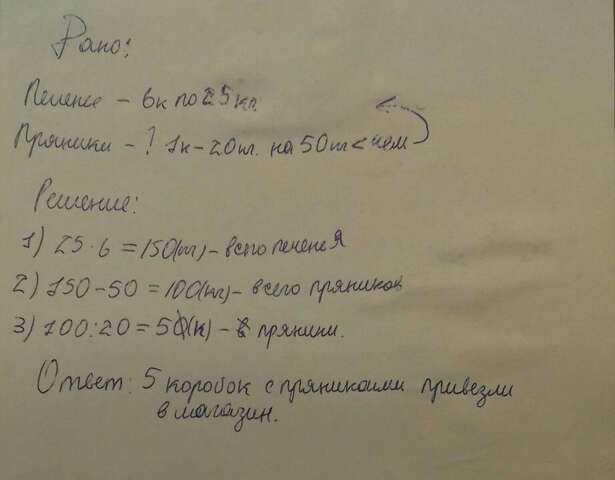 Дано:
Печенье - 6к по 25 кг.
Пряники - ? 1к - 20кг. на 50кг < чем
Решение:
1) 25 · 6 = 150(кг) - всего печенья
2) 150 - 50 = 100(кг) - всего пряников
3) 100 : 20 = 5(к) - пряники.
Ответ: 5 коробок с пряниками привезли
в магазин.